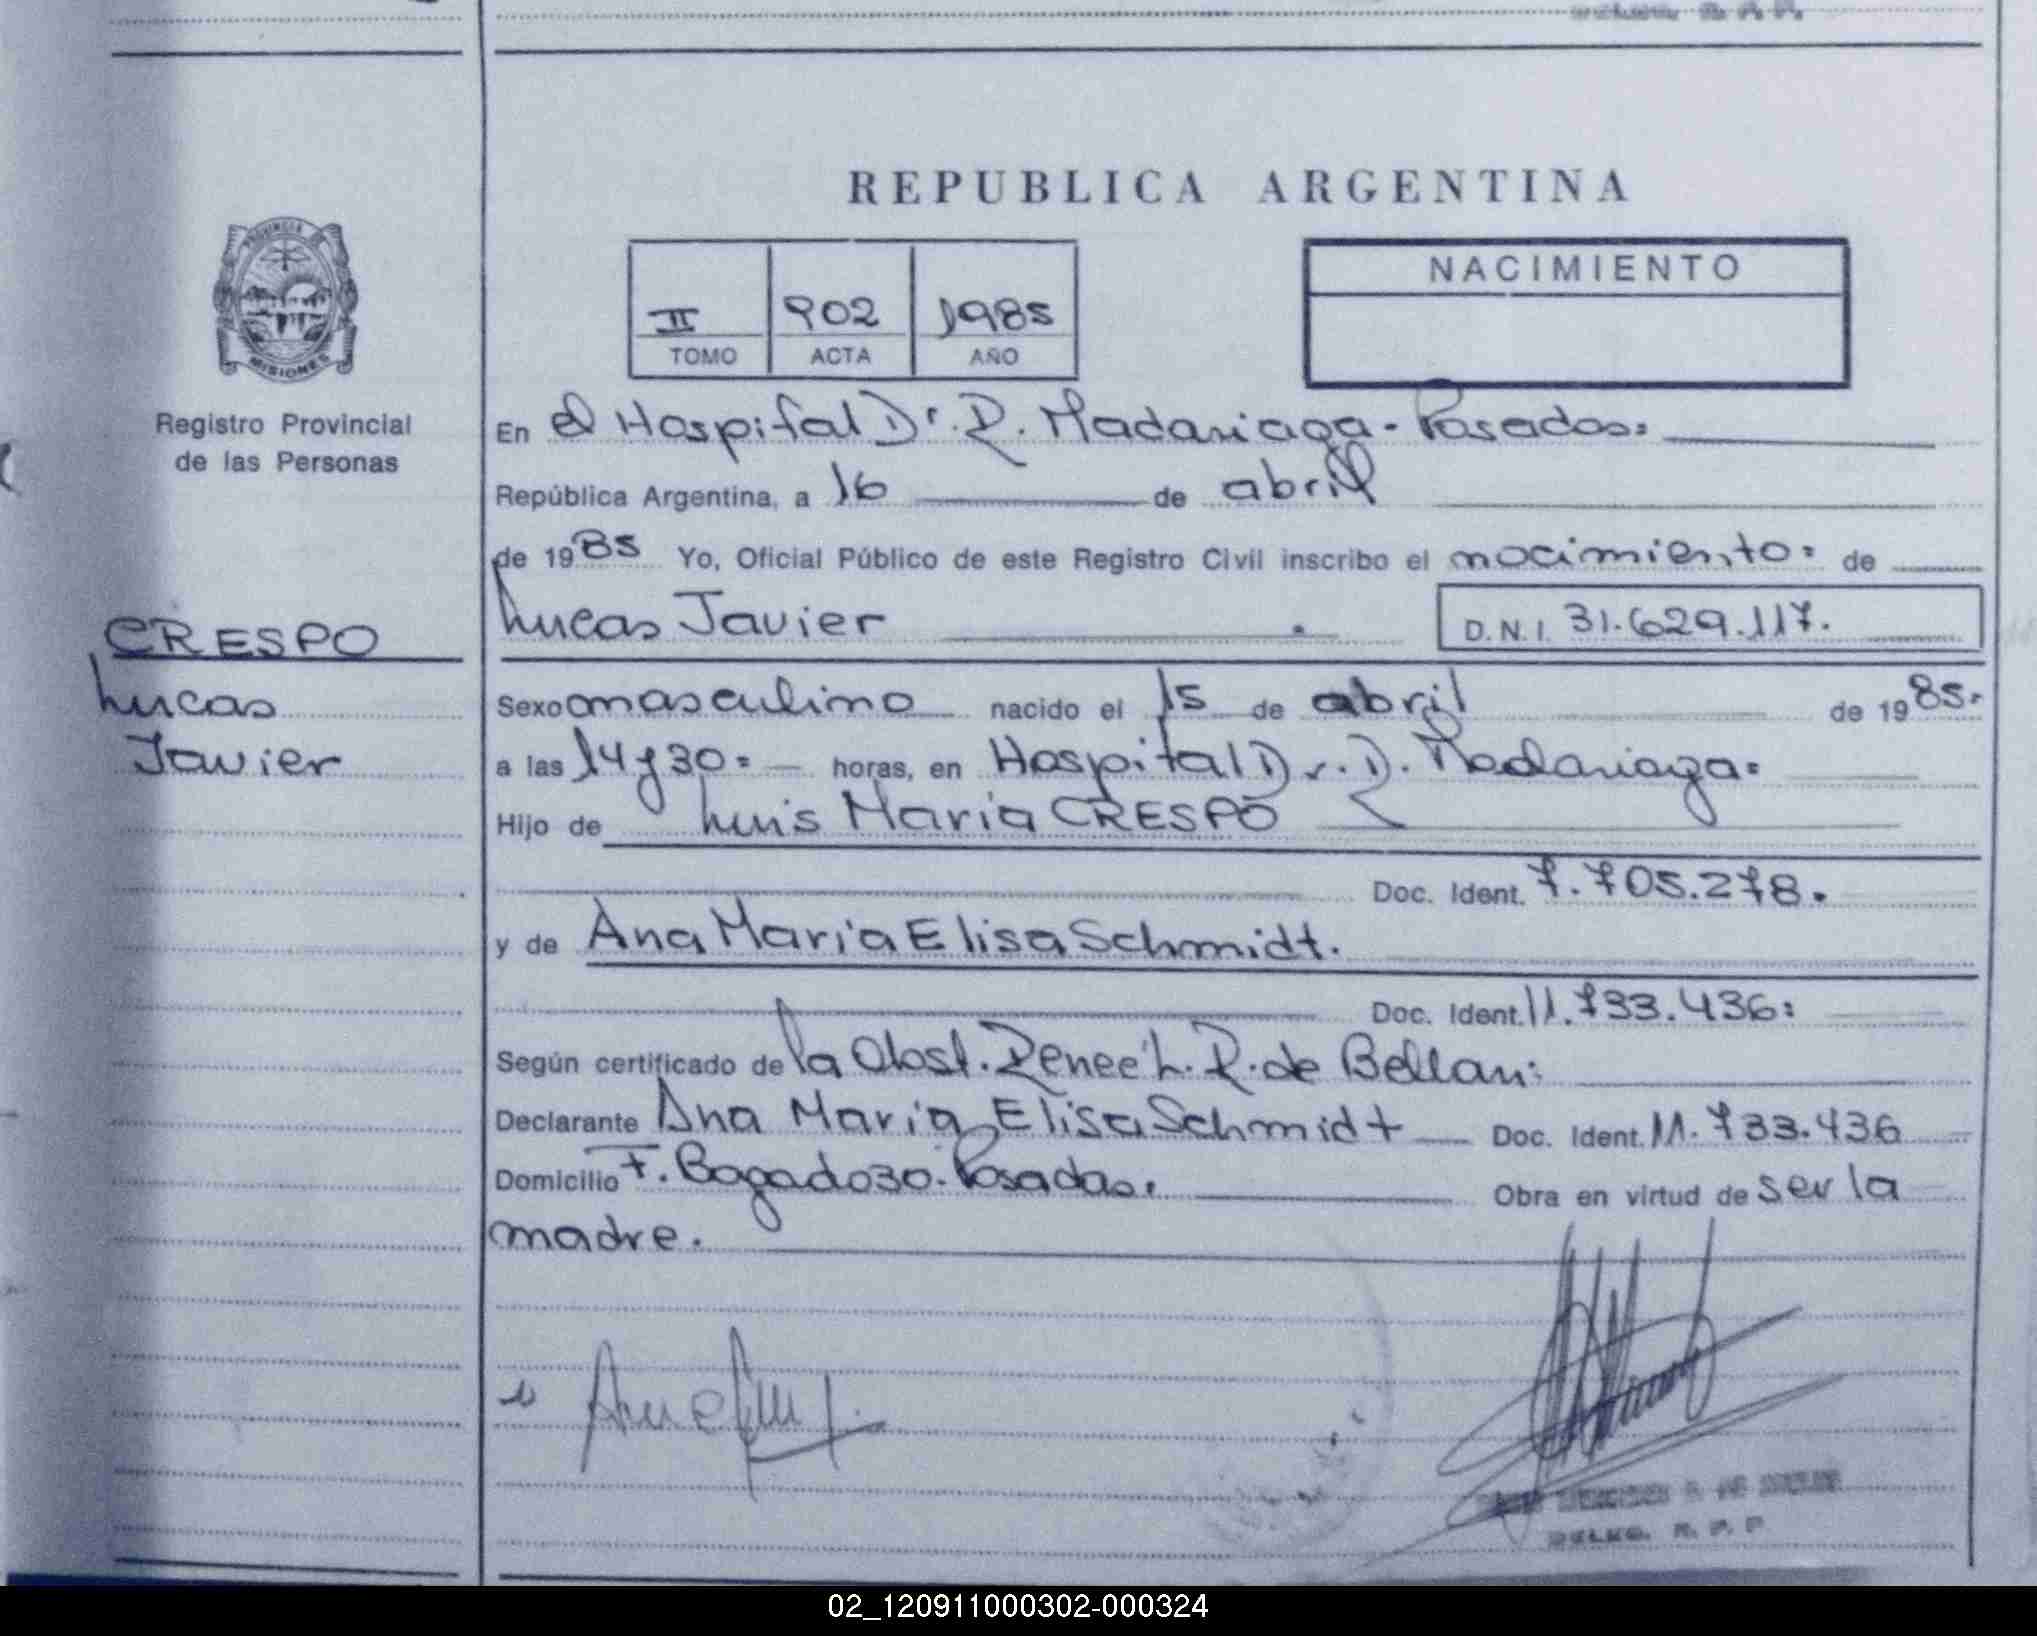 REPUBLICA ARGENTINA
PROVINCIA DE
MISIONES
Registro Provincial
de las Personas
II 902 1985
TOMO ACTA AÑO
NACIMIENTO
En el Hospital Dr. R. Madariaga - Posadas.
República Argentina, a 16 de abril
de 1985 Yo, Oficial Público de este Registro Civil inscribo el nacimiento de
Lucas Javier D.N.I. 31.629.117.
CRESPO
Lucas
Javier
Sexo masculino nacido el 15 de abril de 1985.
a las 14 y 30 horas, en Hospital Dr. R. Madariaga
Hijo de Luis Maria CRESPO
Doc. Ident. 7.705.278.
y de Ana Maria Elisa Schmidt.
Doc. Ident. 11.733.436
Según certificado de la Obst. Renee L. R. de Bellan
Declarante Ana Maria Elisa Schmidt Doc. Ident. 11.733.436
Domicilio F. Bogado 30 - Posadas. Obra en virtud de ser la
madre.
R. P. P.
02_120911000302-000324